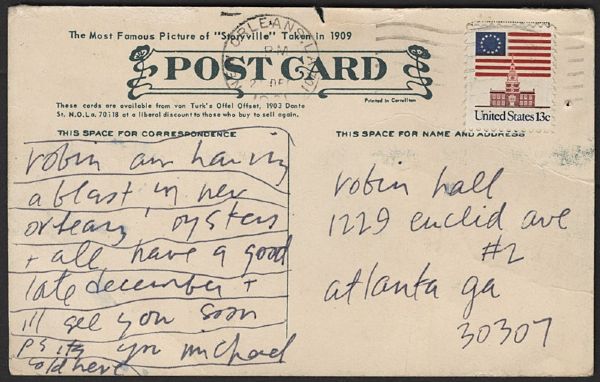 The Most Famous Picture of "Storyville" Taken in 1909
NEW ORLEANS, LA
PM
POST CARD
These cards are available from von Turk's Offel Offset, 1903 Dante
St. N.O. La. 70118 at a liberal discount to those who buy to sell again.
Printed in Carrollton
United States 13c
THIS SPACE FOR CORRESPONDENCE
THIS SPACE FOR NAME AND ADDRESS
robin am having
a blast in new
orleans, oysters
+ all have a good
late december +
ill see you soon
PS its yrs michael
cold here
robin hall
1229 euclid ave
#2
atlanta ga
30307